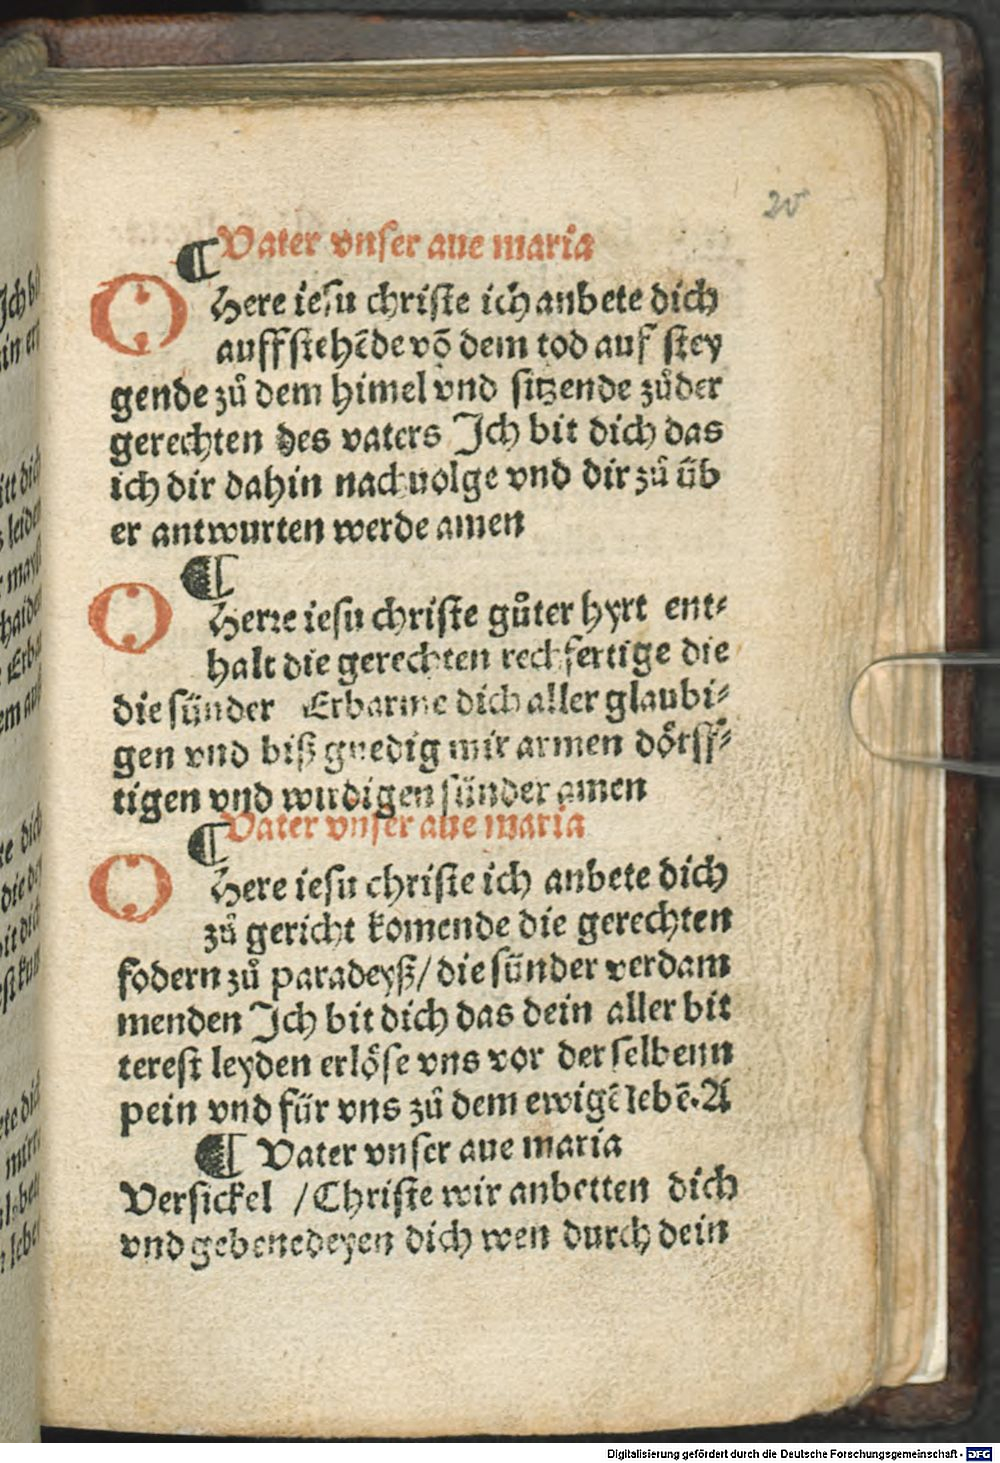 20
¶ Vater vnser aue maria
O Here iesu christe ich anbete dich
auffstehēde vō dem tod auf stey
gende zů dem himel vnd sitzende zůder
gerechten des vaters Ich bit dich das
ich dir dahin nachuolge vnd dir zů üb
er antwurten werde amen
¶
O Herre iesu christe gůter hyrt ent⸗
halt die gerechten rechfertige die
die sünder Erbarme dich aller glaubi⸗
gen vnd biß gnedig mir armen dörff⸗
tigen vnd wirdigen sünder amen
¶ Vater vnser aue maria
O Here iesu christe ich anbete dich
zů gericht komende die gerechten
fodern zů paradeyß/ die sünder verdam
menden Ich bit dich das dein aller bit
terest leyden erlöse vns vor der selbenn
pein vnd für vns zů dem ewigē lebē. A
¶ Vater vnser aue maria
Versickel /Christe wir anbetten dich
vnd gebenedeyen dich wen durch dein
Digitalisierung gefördert durch die Deutsche Forschungsgemeinschaft - DFG